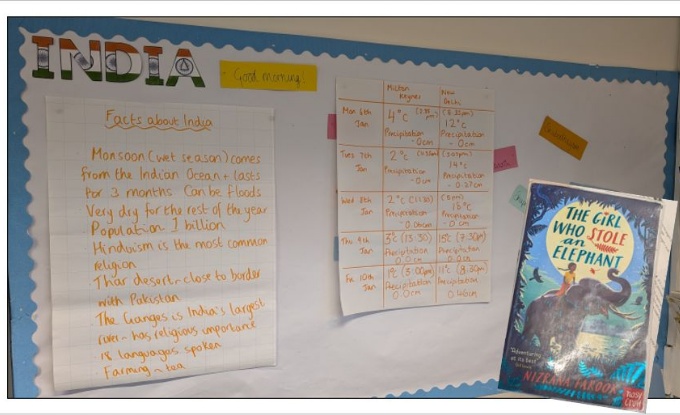 INDIA
Good morning!
Facts about India
Monsoon (wet season) comes
from the Indian Ocean + lasts
for 3 months Can be floods
Very dry for the rest of the year
Population 1 billion
Hinduism is the most common
religion
Thar desart - close to border
with Pakistan
The Ganges is India's largest
river - has religious importance
18 languages spoken
Farming - tea
Milton
Keynes
New
Delhi
Mon 6th
Jan
4°c
Precipitation
- 0cm
12°c
Precipitation
- 0cm
Tues 7th
Jan
2°c
Precipitation
- 0cm
14°c
Precipitation
- 0.37cm
Wed 8th
Jan
2°c (11:10)
Precipitation
Precipitation
- 0cm
Thu 9th
Jan
3°c (13:30)
Precipitation
0.0cm
15°c (7:30pm)
Precipitation
0.0cm
Fri 10th
Jan
1°c (3:00pm)
Precipitation
0.0cm
(8:30pm)
Precipitation
THE GIRL
WHO STOLE
an
ELEPHANT
NIZRANA FAROOK
nosy
Crow